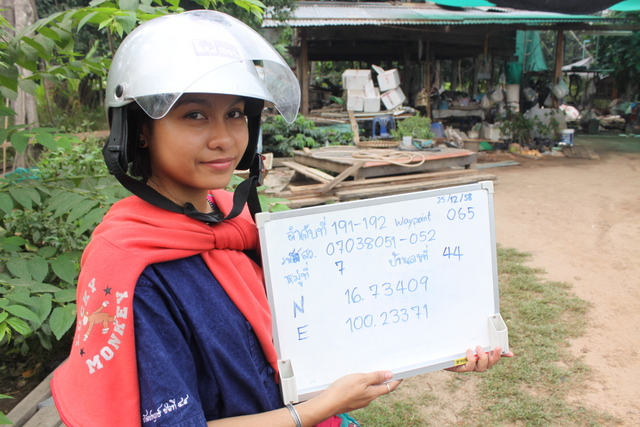 25/12/58
ลำดับที่ 191-192 Waypoint 065
รหัส สว. 07038051-052
หมู่ที่ 7 บ้านเลขที่ 44
N 16.73409
E 100.23371
MONKEY